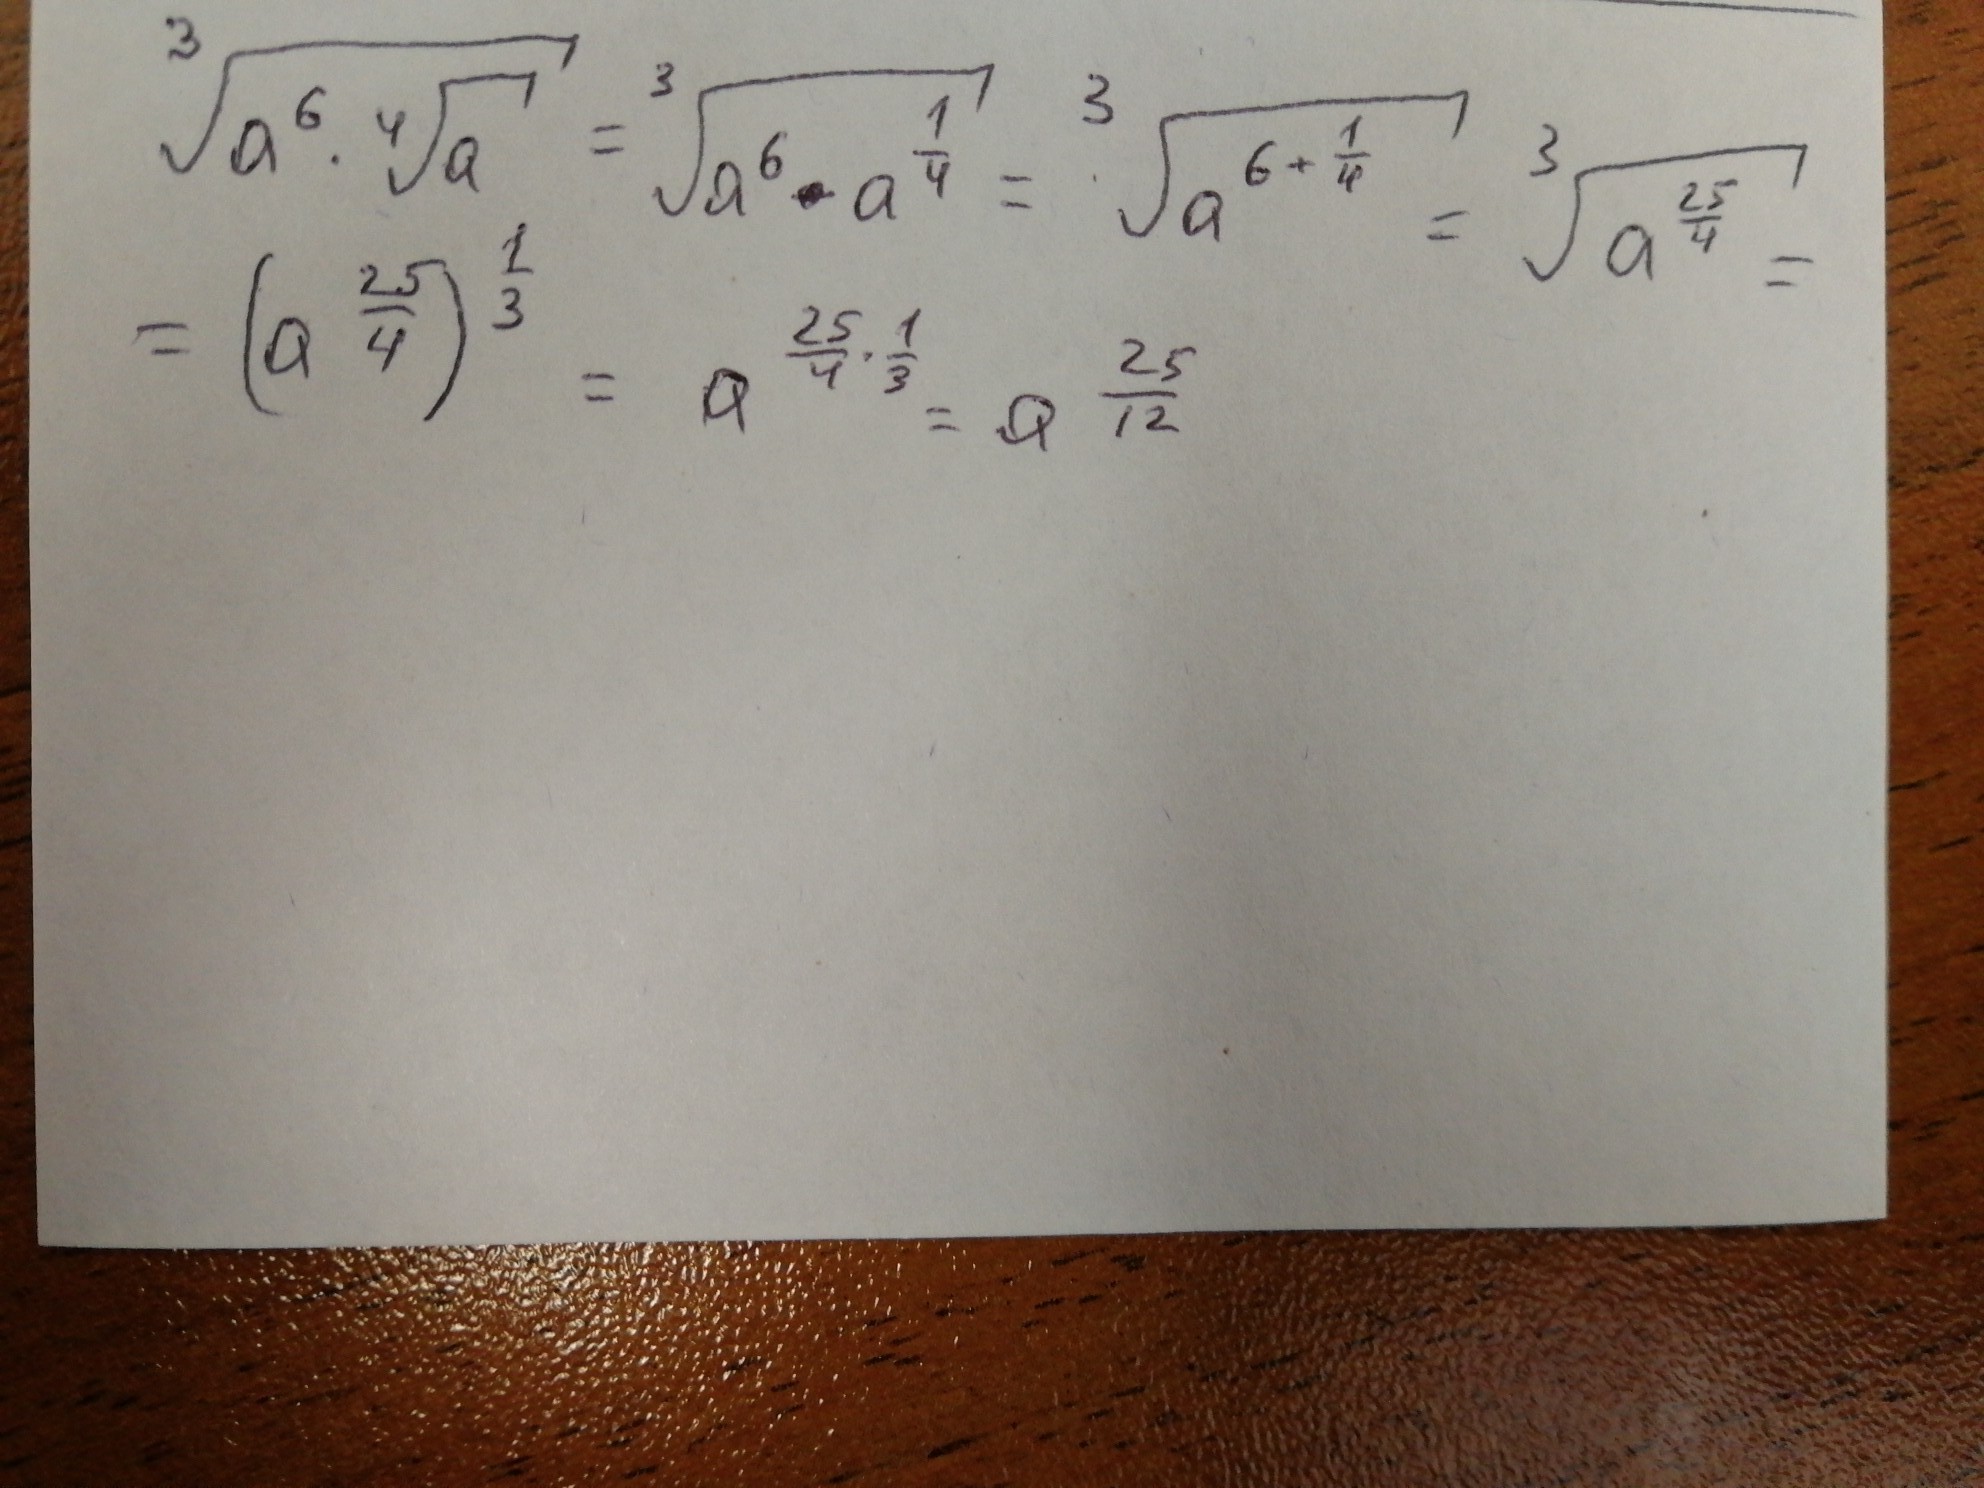 ∛(a⁶ · ∜a) = ∛(a⁶ · a^(1/4)) = ∛(a^(6 + 1/4)) = ∛(a^(25/4)) =
= (a^(25/4))^(1/3) = a^(25/4 · 1/3) = a^(25/12)